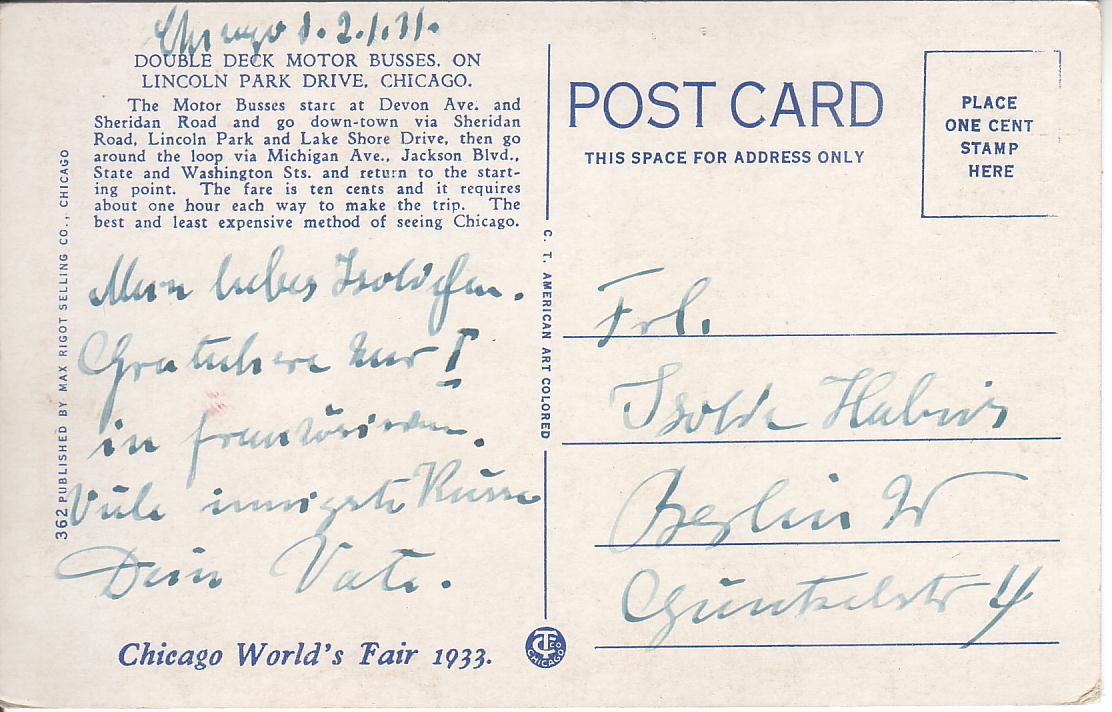 Chicago d. 2.1.31.
DOUBLE DECK MOTOR BUSSES, ON
LINCOLN PARK DRIVE, CHICAGO.
The Motor Busses start at Devon Ave. and
Sheridan Road and go down-town via Sheridan
Road, Lincoln Park and Lake Shore Drive, then go
around the loop via Michigan Ave., Jackson Blvd.,
State and Washington Sts. and return to the start-
ing point. The fare is ten cents and it requires
about one hour each way to make the trip. The
best and least expensive method of seeing Chicago.
362 PUBLISHED BY MAX RIGOT SELLING CO., CHICAGO
Mein liebes Isoldchen.
Gratuliere zur I
in französischen.
Viele innigste Küsse
Dein Vater.
Chicago World's Fair 1933.
C. T. AMERICAN ART COLORED
CTCO CHICAGO
POST CARD
THIS SPACE FOR ADDRESS ONLY
PLACE
ONE CENT
STAMP
HERE
Frl.
Isolde
Berlin W
Güntzelstr 4